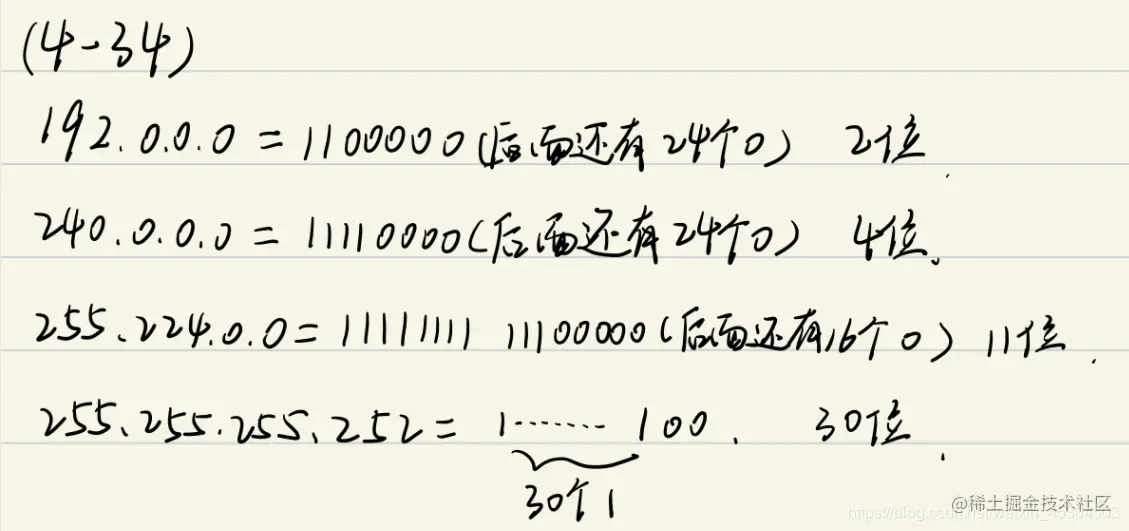 (4-34)
192.0.0.0 = 1100000(后面还有24个0) 2位.
240.0.0.0 = 11110000(后面还有24个0) 4位。
255.224.0.0 = 11111111 11100000(后面还有16个0) 11位.
255.255.255.252 = 1······100. 30位.
30个1
@稀土掘金技术社区